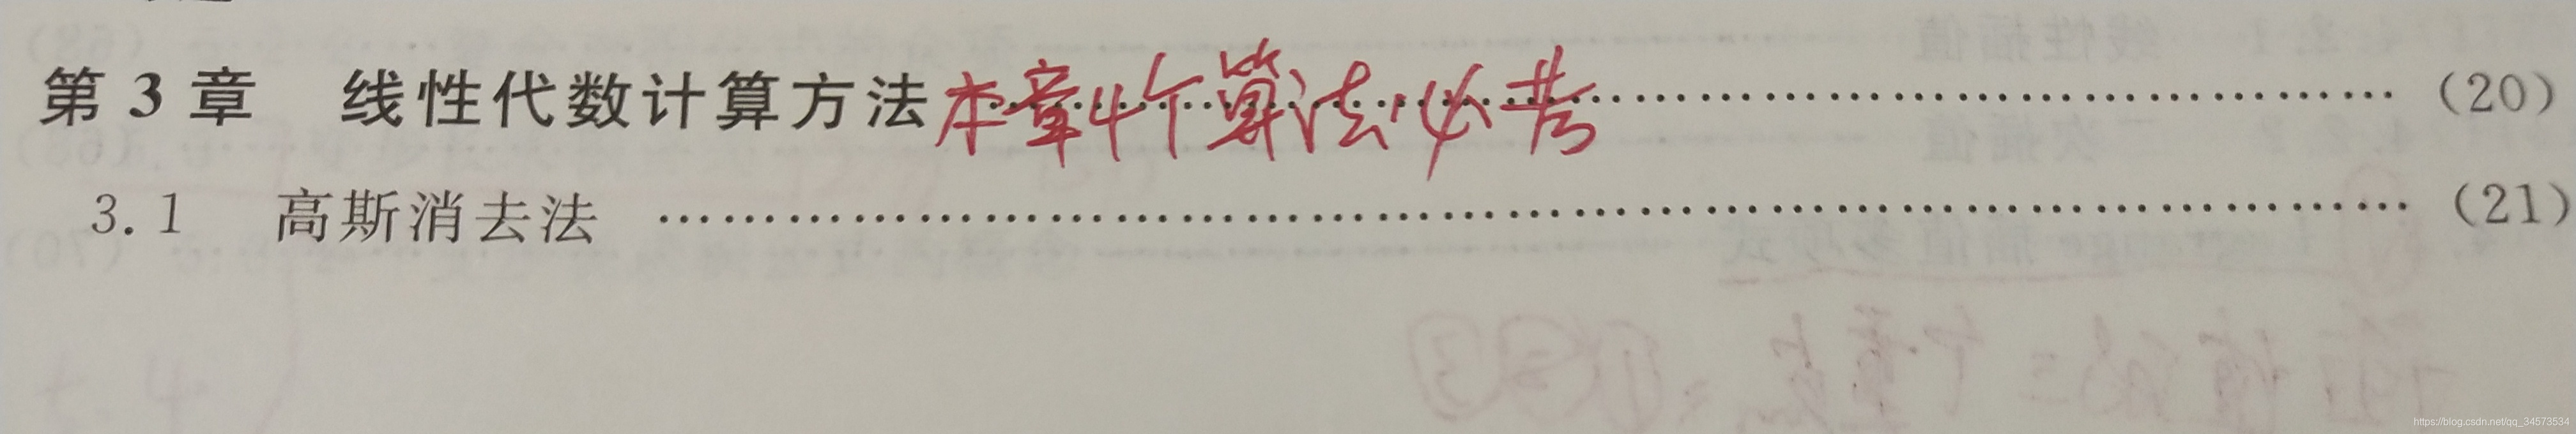 第3章 线性代数计算方法本章4个算法必考……………………………………(20)
3.1 高斯消去法 ……………………………………………………………(21)
https://blog.csdn.net/qq_34573534